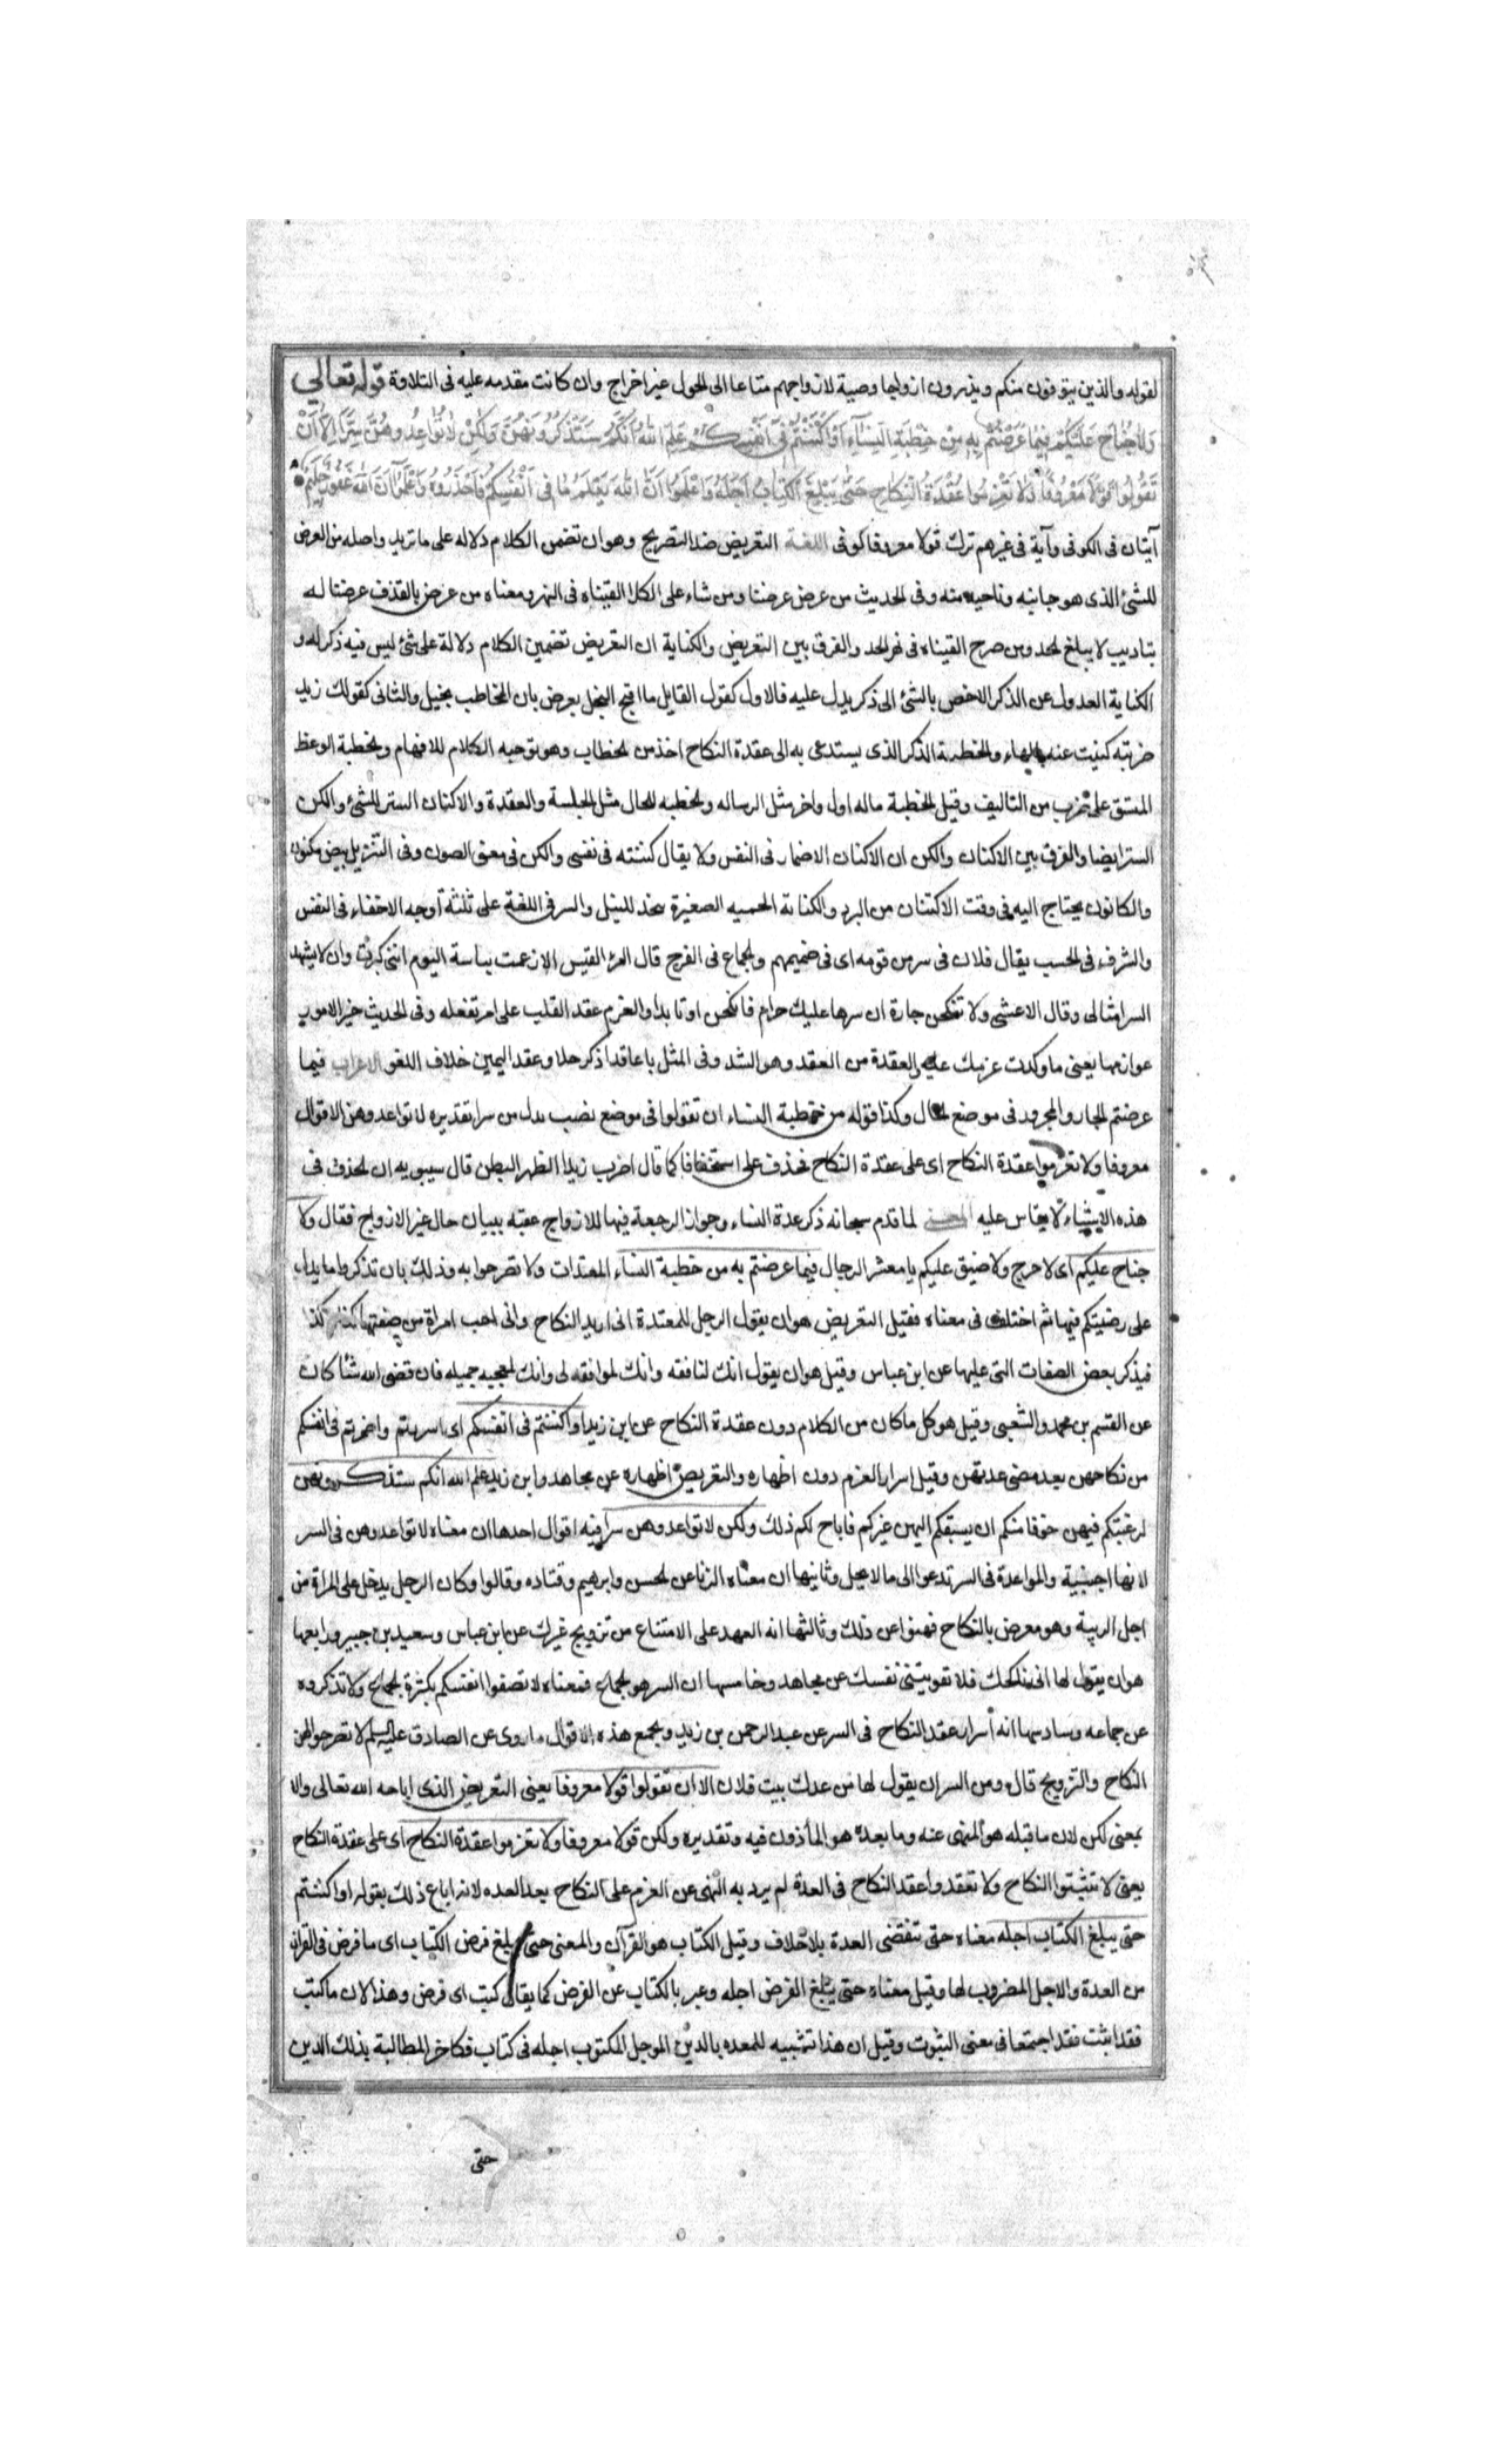 لقوله والذين يتوفون منكم ويذرون ازواجا وصية لازواجهم متاعا الى الحول غير اخراج وان كانت مقدمه عليه فى التلاوة قوله تعالى
وَلَا جُنَاحَ عَلَيْكُمْ فِيمَا عَرَّضْتُمْ بِهِ مِنْ خِطْبَةِ النِّسَآءِ أَوْ أَكْنَنْتُمْ فِى أَنْفُسِكُمْ عَلِمَ اللهُ أَنَّكُمْ سَتَذْكُرُونَهُنَّ وَلَكِنْ لَا تُوَاعِدُوهُنَّ سِرًّا إِلَّا أَنْ
تَقُولُوا قَوْلًا مَعْرُوفًا وَلَا تَعْزِمُوا عُقْدَةَ النِّكَاحِ حَتَّى يَبْلُغَ الْكِتَابُ أَجَلَهُ وَاعْلَمُوا أَنَّ اللهَ يَعْلَمُ مَا فِى أَنْفُسِكُمْ فَاحْذَرُوهُ وَاعْلَمُوا أَنَّ اللهَ غَفُورٌ حَلِيمٌ
آيتان فى الكوفى وآية فى غيرهم ترك قولا معروفا كوفى اللغة التعريض ضد التصريح وهو ان تضمن الكلام دلاله على ما تريد واصله من العرض
للشئ الذى هو جانبه وناحيه منه وفى الحديث من عرض عرضنا ومن شاء على الكلا القيناه فى النهر ومعناه من عرض بالقذف عرضنا له
بتاديب لا يبلغ الحد ومن صرح القيناه فى نهر الحد والفرق بين التعريض والكناية ان التعريض تضمين الكلام دلالة على شئ ليس فيه ذكر له و
الكناية العدول عن الذكر الاخص بالشئ الى ذكر يدل عليه فالاول كقول القايل ما اقبح البخل يعرض بان المخاطب بخيل والثانى كقولك زيد
ضربته كنيت عنه بالهاء والخطبة الذكر الذى يستدعى به الى عقدة النكاح اخذ من الخطاب وهو توجيه الكلام للافهام والخطبة الوعظ
المتسق على ضرب من التاليف وقيل الخطبة ماله اول واخر مثل الرساله والخطبه للحال مثل الجلسة والعقدة والاكنان الستر للشئ والكن
الستر ايضا والفرق بين الاكنان والكن ان الاكنان الاضمار فى النفس ولا يقال كننته فى نفسى والكن فى معنى الصون وفى التنزيل بيض مكنون
والكانون يحتاج اليه فى وقت الاكتنان من البرد والكنانة الصغيرة تتخذ للنبل والسر فى اللغة على ثلثة أوجه الاخفاء فى النفس
والشرف فى الحسب يقال فلان فى سر من قومه اى فى صميمهم والجماع فى الفرج قال امرؤ القيس الا زعمت بسباسة اليوم اننى كبرت وان لا يشهد
السر امثالى وقال الاعشى ولا تنكحن جارة ان سرها عليك حرام فانكحن او تابدا والعزم عقد القلب على امر تفعله وفى الحديث خير الامور
عوازمها يعنى ما وكدت عزمك عليه والعقدة من العقد وهو الشد وفى المثل يا عاقد اذكر حلا وعقد اليمين خلاف اللغو الاعراب فيما
عرضتم الجار والمجرور فى موضع الحال وكذا قوله من خطبة النساء ان تقولوا فى موضع نصب بدل من سرا تقديره لا تواعدوهن الا قولا
معروفا ولا تعزموا عقدة النكاح اى على عقدة النكاح فحذف على استخفافا كما قال اضرب زيدا الظهر البطن قال سيبويه ان الحذف فى
هذه الاشياء لا يقاس عليه المعنى لما قدم سبحانه ذكر عدة النساء وجواز الرجعة فيها للازواج عقبه ببيان حال غير الازواج فقال ولا
جناح عليكم اى لا حرج ولا ضيق عليكم يا معشر الرجال فيما عرضتم به من خطبة النساء المعتدات ولا تصرحوا به وذلك بان تذكروا ما يدل
على رضيتكم فيها ثم اختلف فى معناه فقيل التعريض هو ان يقول الرجل للمعتدة انى اريد النكاح وانى احب امراة من صفتها كذا وكذا
فيذكر بعض الصفات التى عليها عن ابن عباس وقيل هو ان يقول انك لنافقه وانك لموافقه لى وانك لمعجبه جميله فان قضى الله شئا كان
عن القسم بن محمد والشعبى وقيل هو كل ما كان من الكلام دون عقدة النكاح عن ابن زيد او اكننتم فى انفسكم اى اسررتم واضمرتم فى انفسكم
من نكاحهن بعد مضى عدتهن وقيل اسرار العزم دون اظهاره والتعريض اظهاره عن مجاهد وابن زيد علم الله انكم ستذكرونهن
لرغبتكم فيهن خوفا منكم ان يسبقكم اليهن غيركم فاباح لكم ذلك ولكن لا تواعدوهن سرا فيه اقوال احدها ان معناه لا تواعدوهن فى السر
لانها اجنبية والمواعدة فى السر تدعوا الى ما لا يحل وثانيها ان معناه الزنا عن الحسن وابرهيم وقتاده وقالوا وكان الرجل يدخل على المراة من
اجل الريبة وهو معرض بالنكاح فهنوا عن ذلك وثالثها انه العهد على الامتناع من تزويج غيرك عن ابن عباس وسعيد بن جبير ورابعها
هو ان يقول لها انى ناكحك فلا تفوتينى نفسك عن مجاهد وخامسها ان السر هو الجماع فمعناه لا تصفوا انفسكم بكثرة الجماع ولا تذكروه
عن جماعه وسادسها انه أسرار عقد النكاح فى السر عن عبد الرحمن بن زيد ويجمع هذه الاقوال ما روى عن الصادق عليه السلم لا تصرحوا لهن
النكاح والتزويج قال ومن السر ان يقول لها موعدك بيت فلان الا ان تقولوا قولا معروفا يعنى التعريض الذى اباحه الله تعالى والا
بمعنى لكن لان ما قبله هو المنهى عنه وما بعده هو المأذون فيه وتقديره ولكن قولا معروفا ولا تعزموا عقدة النكاح اى على عقدة النكاح
يعنى لا تبثتوا النكاح ولا تعقدوا عقد النكاح فى العدة لم يرد به النهى عن العزم على النكاح بعد العده لانه اباح ذلك بقوله او اكننتم
حتى يبلغ الكتاب اجله معناه حتى تنقضى العدة بلا خلاف وقيل الكتاب هو القرآن والمعنى حتى يبلغ فرض الكتاب اى ما فرض فى القرآن
من العدة والاجل المضروب لها وقيل معناه حتى يبلغ الفرض اجله وعبر بالكتاب عن الفرض كما يقال كتب اى فرض وهذا لان ما كتب
فقد اثبت فقد اجتمعا فى معنى الثبوت وقيل ان هذا تشبيه للمعده بالدين الموجل المكتوب اجله فى كتاب فكما خر المطالبة بذلك الدين
حتى